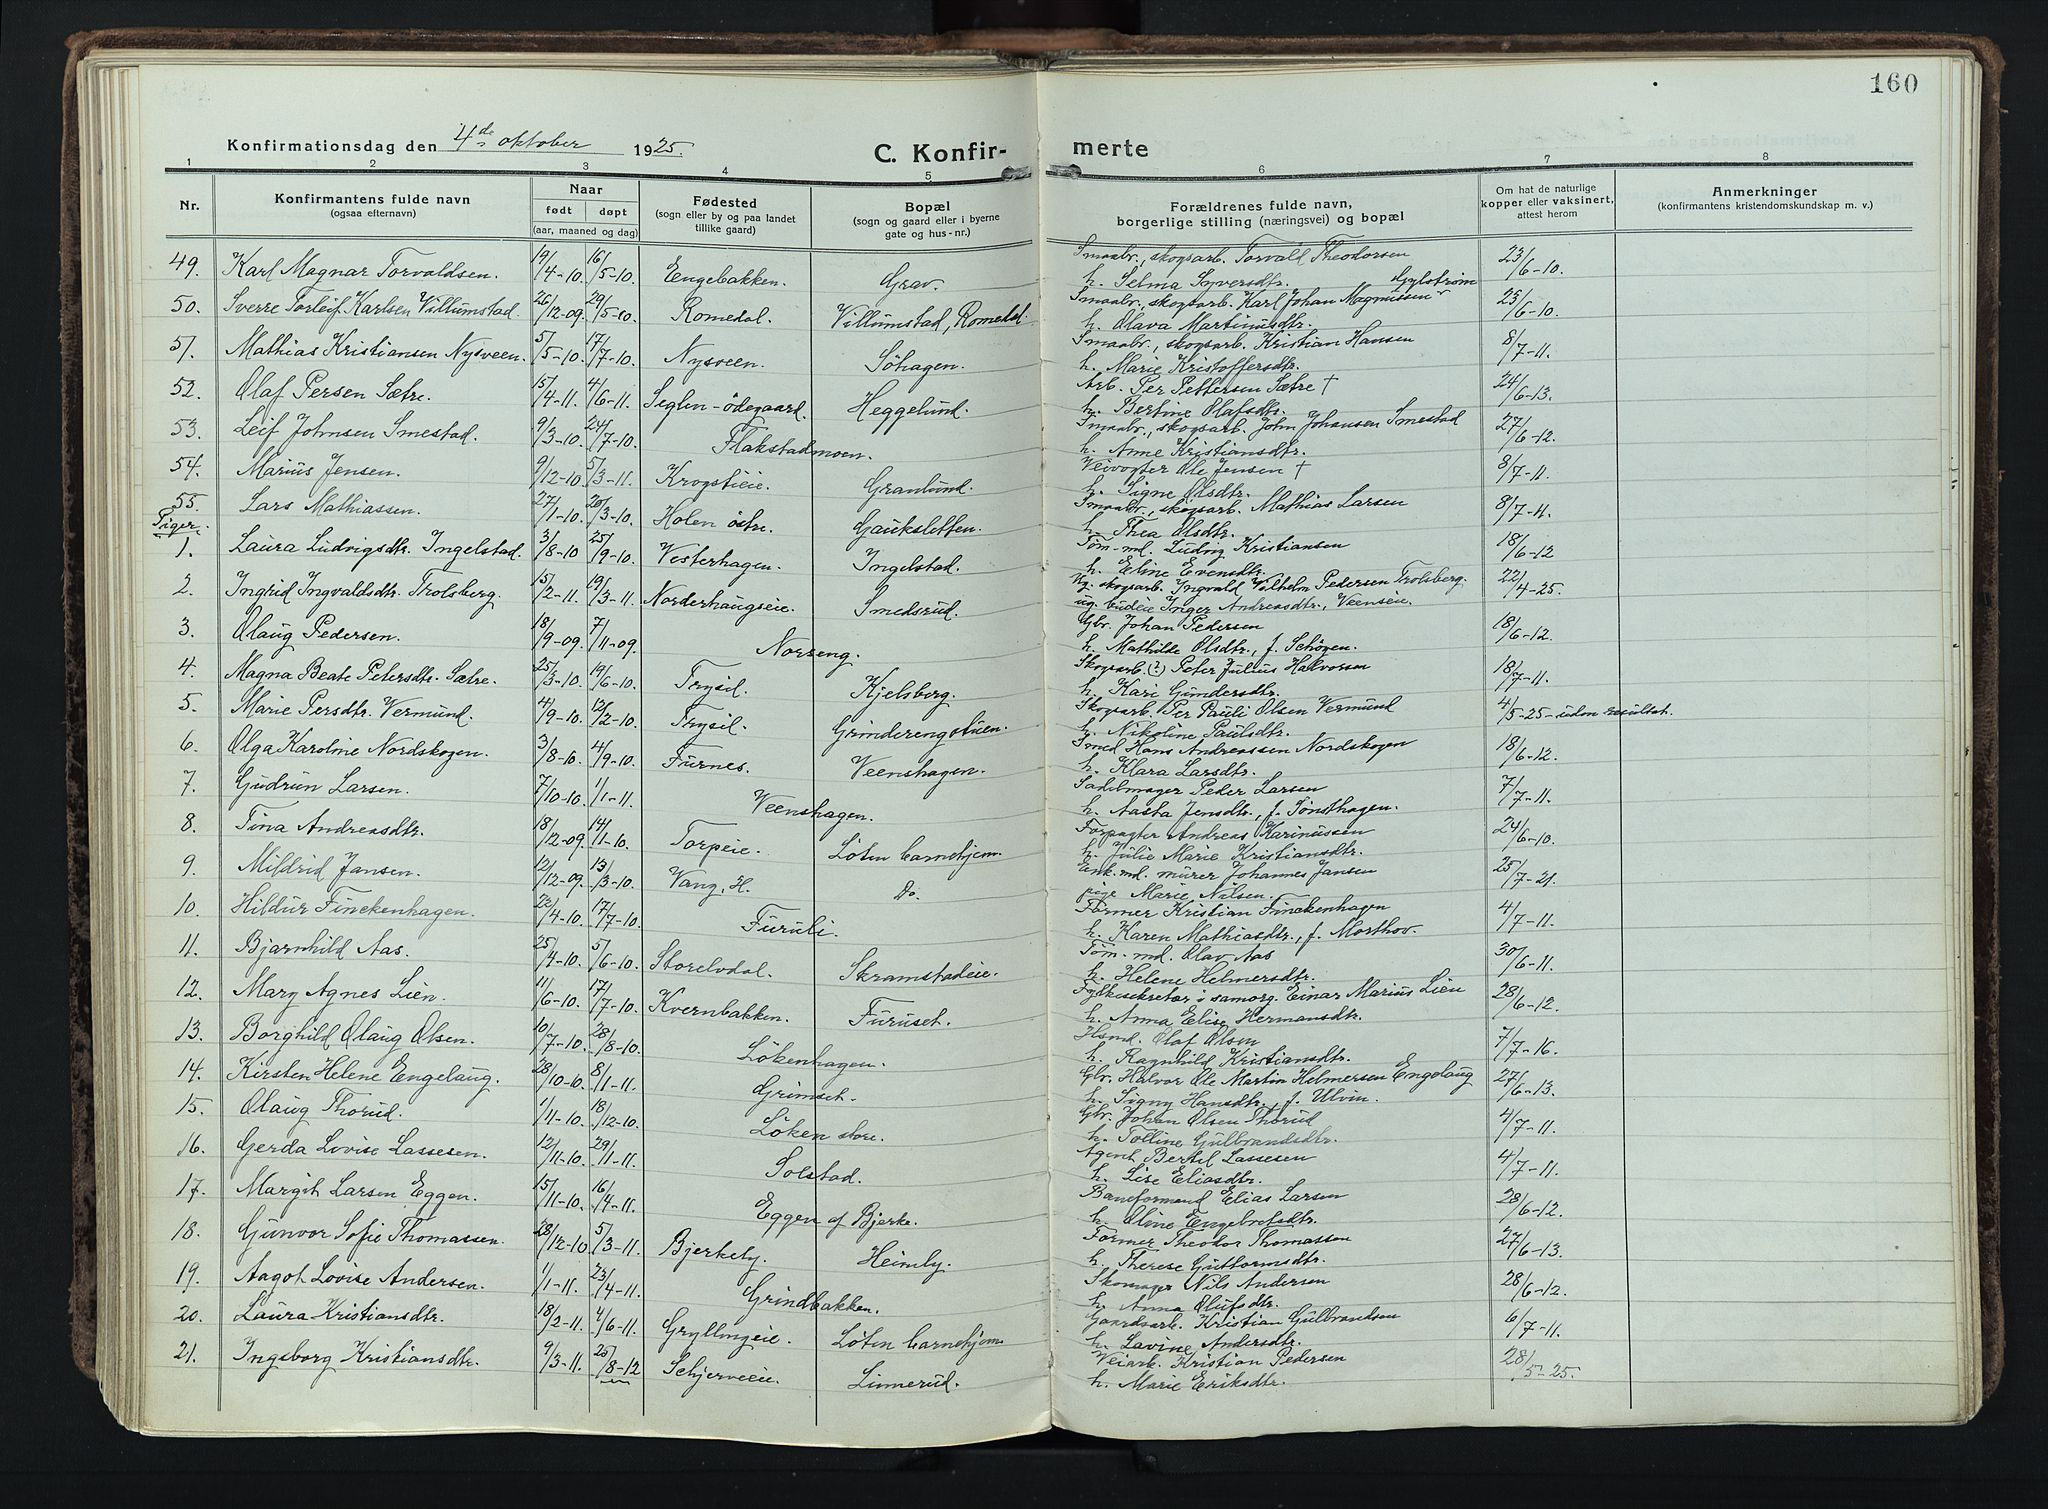 160
Konfirmationsdag den 4de oktober 1925.
C. Konfir-
merte
1 2 3 4 5 6 7 8
Nr.
Konfirmantens fulde navn
(ogsaa efternavn)
Naar
født døpt
(aar, maaned og dag)
Fødested
(sogn eller by og paa landet
tillike gaard)
Bopæl
(sogn og gaard eller i byerne
gate og hus-nr.)
Forældrenes fulde navn,
borgerlige stilling (næringsvei) og bopæl
Om hat de naturlige
kopper eller vaksinert,
attest herom
Anmerkninger
(konfirmantens kristendomskundskap m. v.)
49. Karl Magnar Torvaldsen. 19/4-10. 16/5-10. Engebakken. Grav. Smaabr., skogsarb. Torvald Theodorsen 23/6-10.
h. Selma Syversdtr. Gylstrøm
50. Sverre Torleif Karlsen Villumstad. 26/12-09. 29/5-10. Romedal. Villumstad, Romedal. Smaabr., skogsarb. Karl Johan Magnussen 25/6-10.
h. Olava Martinusdtr.
51. Mathias Kristiansen Nysveen. 5/5-10. 17/7-10. Nysveen. Söhagen. Smaabr., skogsarb. Kristian Hansen 8/7-11.
h. Marie Kristoffersdtr.
52. Olaf Persen Sætre. 15/4-11. 4/6-11. Seglen-ödegaard. Heggelund. Arb. Per Pettersen Sætre † 24/6-13.
h. Bertine Olafsdtr.
53. Leif Johnsen Smestad. 9/3-10. 24/7-10. Flakstadmoen. Smaabr., skogsarb. John Johansen Smestad 27/6-12.
h. Anne Kristiansdtr.
54. Marius Jensen. 9/12-10. 5/3-11. Krogstieie. Granlund. Veivogter Ole Jensen † 8/7-11.
h. Signe Olsdtr.
55. Lars Mathiassen. 27/1-10. 20/3-10. Holen östre. Gauksletten. Smaabr., skogsarb. Mathias Larsen 8/7-11.
h. Thea Olsdtr.
Piger.
1. Laura Ludvigsdtr. Ingelstad. 3/8-10 25/9-10. Vesterhagen. Ingelstad. Töm.-md. Ludvig Kristiansen 18/6-12
h. Eline Evensdtr.
2. Ingrid Ingvaldsdtr. Trolsberg. 15/2-11. 19/3-11. Norderhaugseie. Smedsrud. Ug. skogsarb. Ingvald Vilhelm Pedersen Trolsberg. 22/4-25.
ug. budeie Inger Andreasdtr., Veenseie.
3. Olaug Pedersen. 18/9-09. 7/11-09. Norseng. Gbr. Johan Pedersen 18/6-12.
h. Mathilde Olsdtr., f. Schöyen.
4. Magna Beate Petersdtr. Sætre. 25/3-10. 19/6-10. Trysil. Kjelsberg. Skogsarb. (?) Peter Julius Halvorsen 18/7-11.
h. Kari Gundersdtr.
5. Marie Persdtr. Vermund. 4/9-10. 12/2-10. Trysil. Grinderengstuen. Skogsarb. Per Pauli Olsen Vermund 4/5-25-uden resultat.
h. Nikoline Paulsdtr.
6. Olga Karoline Nordskogen. 3/8-10. 4/9-10. Furnes. Veenshagen. Smed Hans Andreassen Nordskogen 18/6-12.
h. Klara Larsdtr.
7. Gudrun Larsen. 7/10-10. 1/1-11. Veenshagen. Sadelmager Peder Larsen 7/7-11.
h. Aasta Jensdtr., f. Tøndhagen.
8. Tina Andreasdtr. 18/12-09. 14/1-10. Torpeie. Löten barnehjem. Forpagter Andreas Karinussen 24/6-10.
h. Julie Marie Kristiansdtr.
9. Mildrid Jansen. 12/12-09. 13/3-10. Vang, H. Do. Enk.md. murer Johannes Jansen 25/7-21.
pige Marie Nilsen.
10. Hildur Finckenhagen. 22/4-10. 17/7-10. Furuli. Former Kristian Finckenhagen 4/7-11.
h. Karen Mathiasdtr., f. Morthov.
11. Bjarnhild Aas. 25/4-10. 5/6-10. Storelvdal. Skramstadeie. Töm.-md. Olav Aas 30/6-11.
h. Helene Helmersdtr.
12. Mary Agnes Lien. 11/6-10. 17/7-10. Kvernbakken. Furuset. Fylkessekretær i samorg. Einar Marius Lien 28/6-12.
h. Anna Elise Hermansdtr.
13. Borghild Olaug Olsen. 10/7-10. 28/8-10. Lökenhagen. Hsmd. Olaf Olsen 7/7-16.
h. Ragnhild Kristiansdtr.
14. Kirsten Helene Engelaug. 28/10-10. 8/1-11. Grimset. Gbr. Halvor Ole Martin Helmersen Engelaug 27/6-13.
h. Signy Hansdtr., f. Ulvin.
15. Olaug Thorud. 1/11-10. 18/12-10. Löken store. Gbr. Johan Olsen Thorud 4/7-11.
h. Tolline Gulbrandsdtr.
16. Gerda Lovise Lassesen. 12/11-10. 29/1-11. Solstad. Agent Bertel Lassesen 4/7-11.
h. Lise Eliasdtr.
17. Margit Larsen Eggen. 15/11-10. 16/4-11. Eggen af Bjerke. Baneformand Elias Larsen 28/6-12.
h. Oline Engebretsdtr.
18. Gunvor Sofie Thomassen. 28/12-10 5/3-11. Bjerkely. Heimly. Former Theodor Thomassen 27/6-13.
h. Therese Guttormsdtr.
19. Aagot Lovise Andersen. 1/1-11. 23/4-11. Grindbakken. Skomager Nils Andersen 28/6-12.
h. Anna Olufsdtr.
20. Laura Kristiansdtr. 18/2-11. 4/6-11. Gryllingeie. Löten barnehjem. Gaardsarb. Kristian Gulbrandsen 6/7-11.
h. Lavine Andersdtr.
21. Ingeborg Kristiansdtr. 9/3-11. 25/8-12 Schjerveeie. Linnerud. Veiarb. Kristian Pedersen 28/5-25.
h. Marie Eriksdtr.